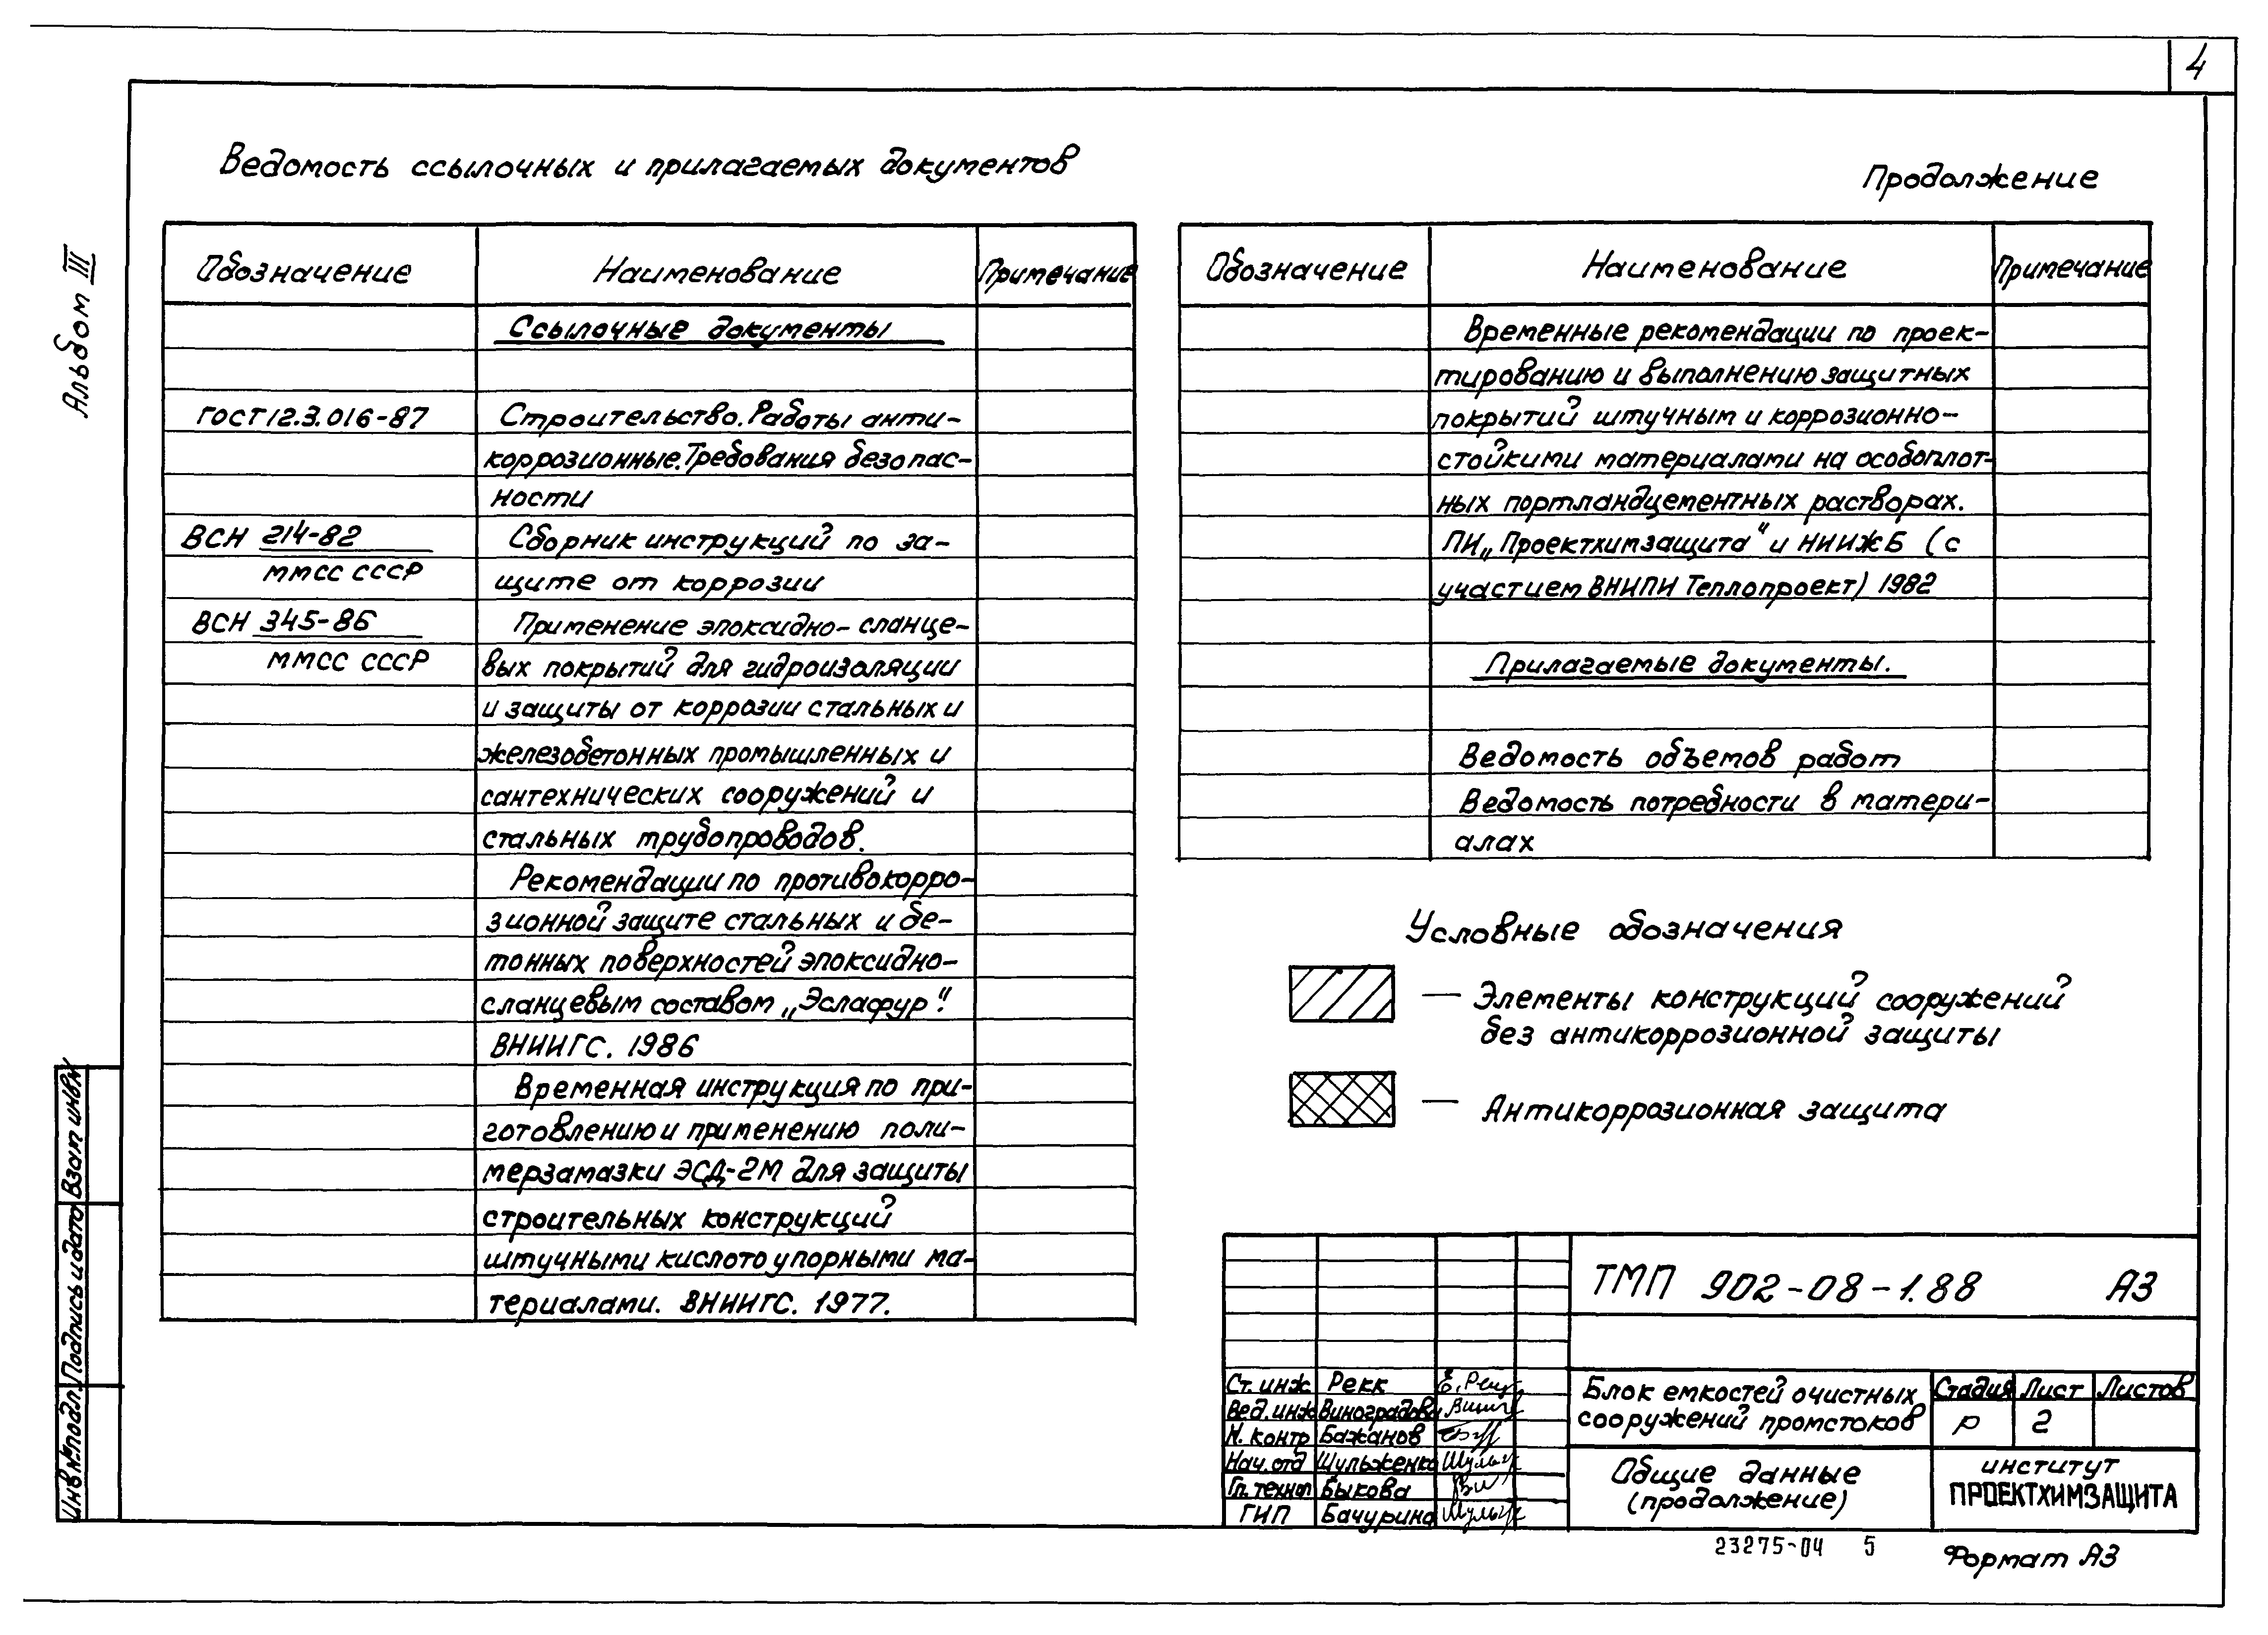 4
Альбом III
Ведомость ссылочных и прилагаемых документов
Обозначение Наименование Примечание
Ссылочные документы
ГОСТ 12.3.016-87 Строительство. Работы анти-
коррозионные. Требования безопас-
ности
ВСН 214-82 Сборник инструкций по за-
ММСС СССР щите от коррозии
ВСН 345-86 Применение эпоксидно-сланце-
ММСС СССР вых покрытий для гидроизоляции
и защиты от коррозии стальных и
железобетонных промышленных и
сантехнических сооружений и
стальных трубопроводов.
Рекомендации по противокорро-
зионной защите стальных и бе-
тонных поверхностей эпоксидно-
сланцевым составом „Эслафур".
ВНИИГС. 1986
Временная инструкция по при-
готовлению и применению поли-
мерзамазки ЭСД-2М для защиты
строительных конструкций
штучными кислотоупорными ма-
териалами. ВНИИГС. 1977.
Продолжение
Обозначение Наименование Примечание
Временные рекомендации по проек-
тированию и выполнению защитных
покрытий штучным и коррозионно-
стойкими материалами на особоплот-
ных портландцементных растворах.
ПИ „Проектхимзащита" и НИИЖБ (с
участием ВНИПИ Теплопроект) 1982
Прилагаемые документы.
Ведомость объемов работ
Ведомость потребности в матери-
алах
Условные обозначения
— Элементы конструкций сооружений
без антикоррозионной защиты
— Антикоррозионная защита
Взам инв№
Подпись и дата
Инв№ подл.
ТМП 902-08-1.88 АЗ
Ст. инж Рекк
Вед. инж Виноградова
Н. контр Бажанов
Нач. отд Шульженко
Гл. технол Быкова
ГИП Бачурина
Блок емкостей очистных
сооружений промстоков
Стадия Лист Листов
Р 2
Общие данные
(продолжение)
институт
ПРОЕКТХИМЗАЩИТА
23275-04 5
Формат А3